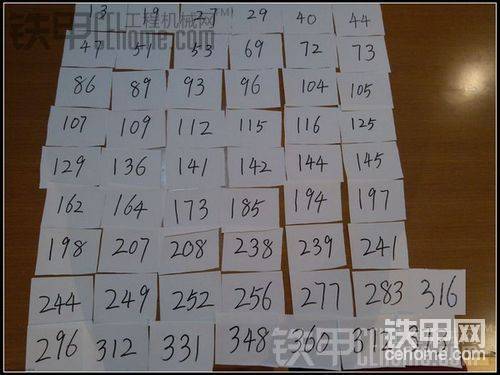 13 19 27 29 40 44
47 51 53 69 72 73
86 89 93 96 104 105
107 109 112 115 116 125
129 136 141 142 144 145
162 164 173 185 194 197
198 207 208 238 239 241
244 249 252 256 277 283 316
296 312 331 348 360 372
铁甲 工程机械网 TM
cehome.com
铁甲工程机械网
cehome.com
铁甲网
cehome.com